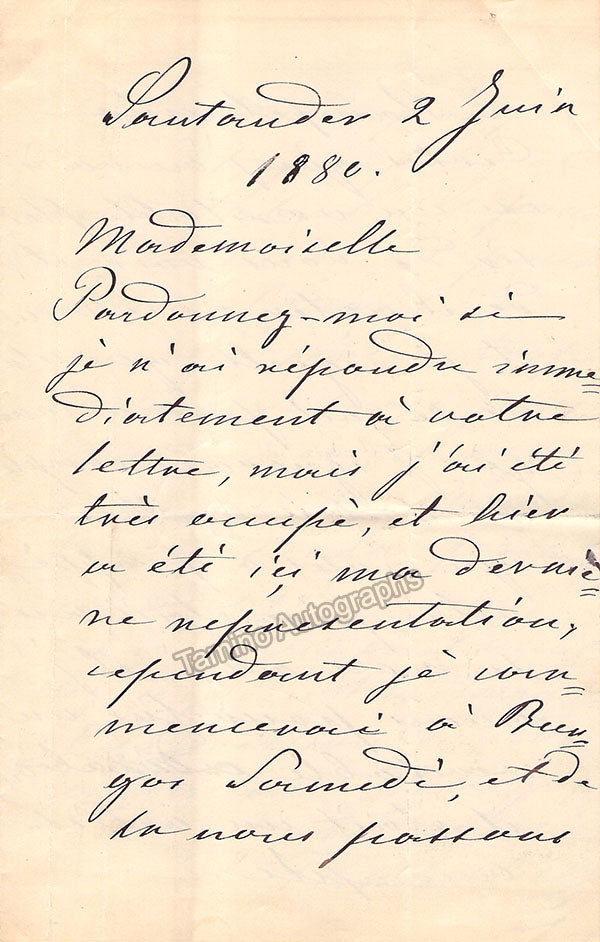 Santander 2 Juin
1880.
Mademoiselle
Pardonnez-moi si
je n'ai répondu imme=
diatement à votre
lettre, mais j'ai été
très occupè, et hier
a été ici ma derniè=
re representation,
cependant je com=
mencerai à Bur=
gos Samedi, et de
la nous passons
Tamino Autographs